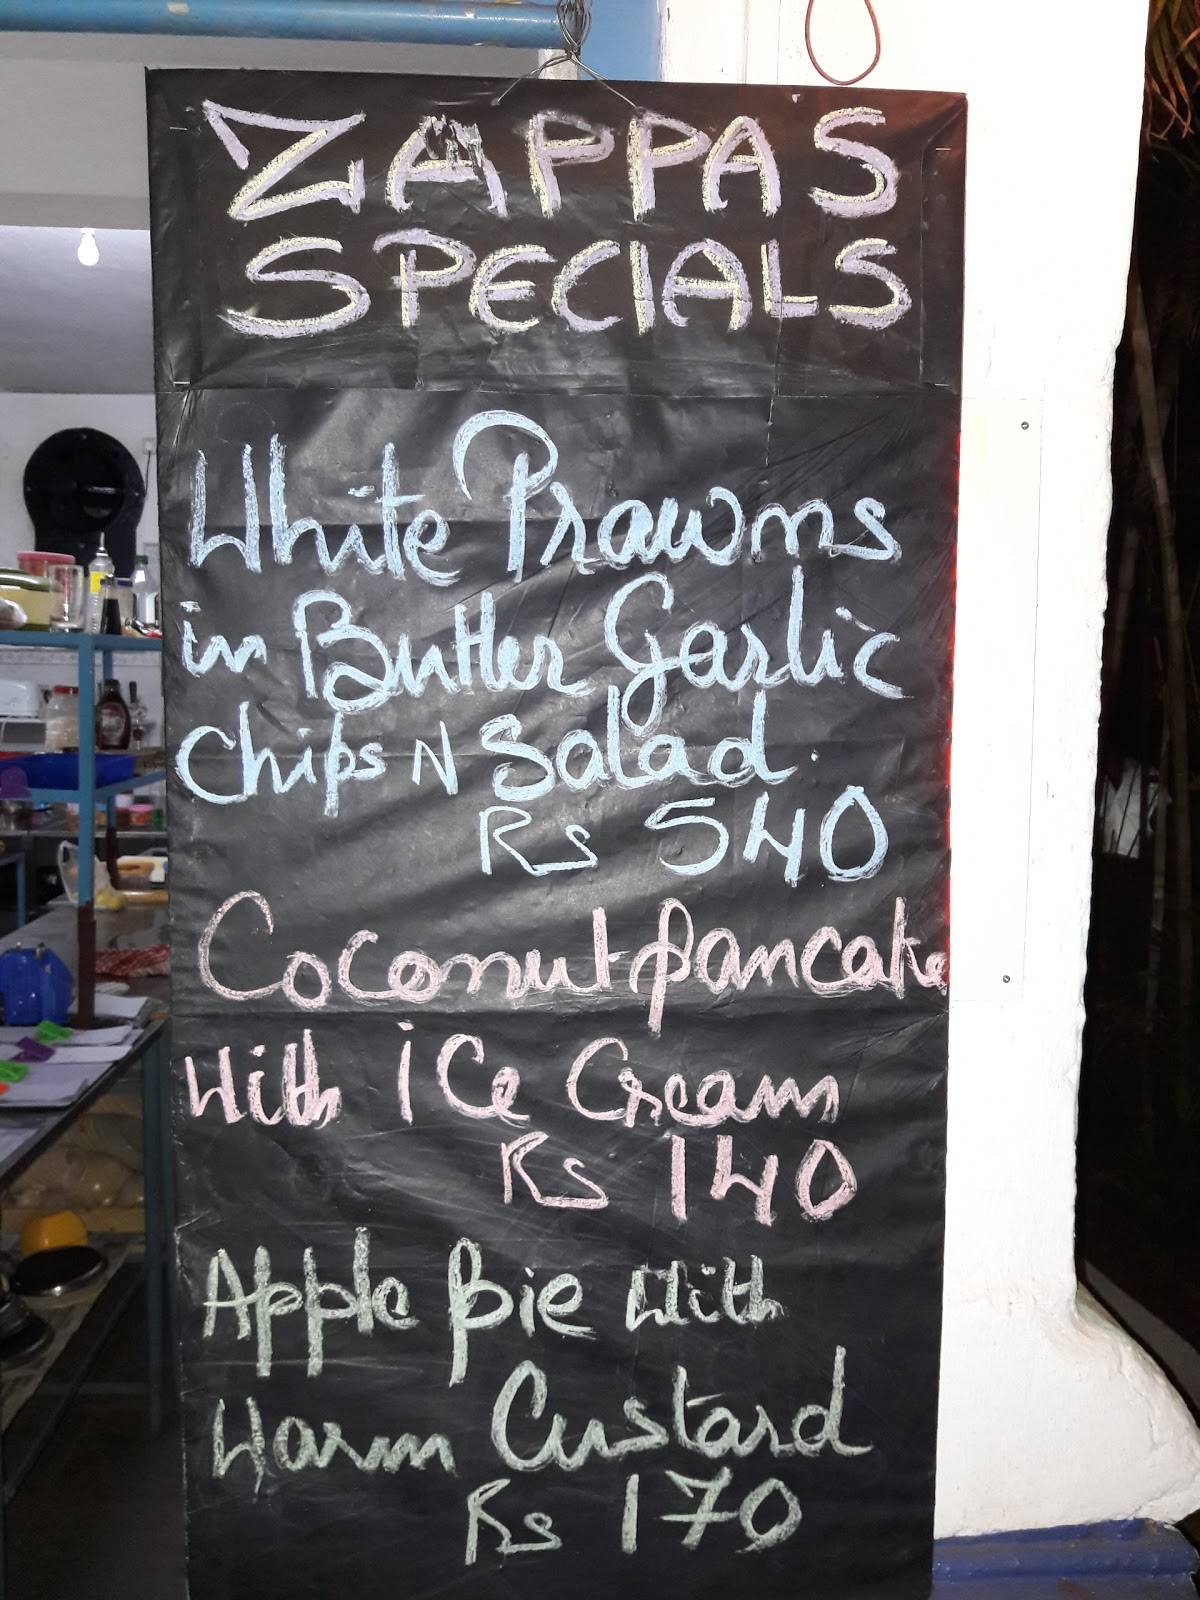 ZAPPAS
SPECIALS
White Prawns
in Butter Garlic
Chips N Salad.
Rs 540
Coconut pancake
With ice Cream
Rs 140
Apple Pie With
Warm Custard
Rs 170